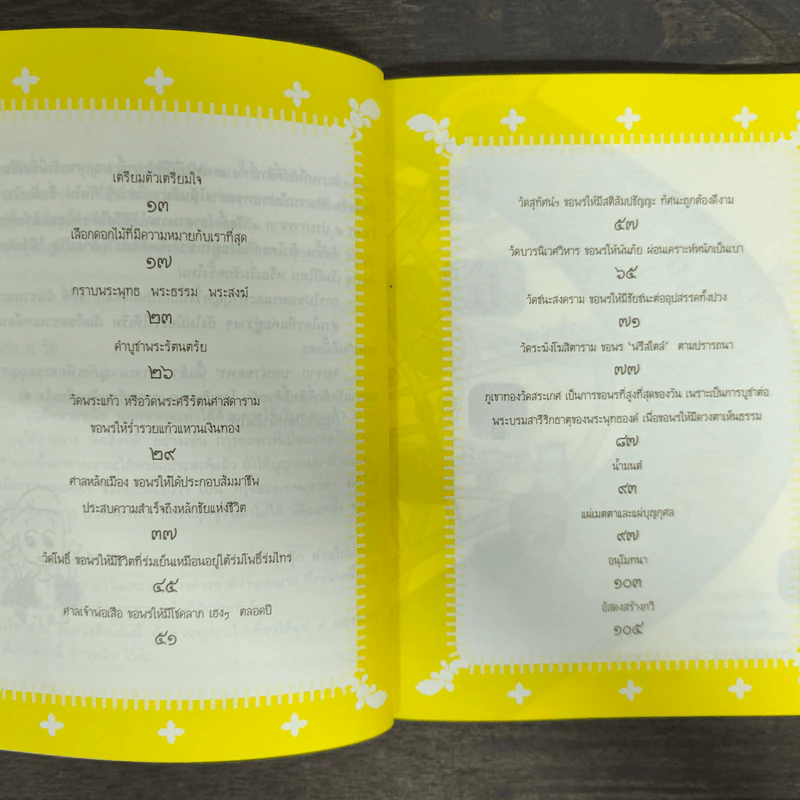 เตรียมตัวเตรียมใจ
๑๓
เลือกดอกไม้ที่มีความหมายกับเราที่สุด
๑๗
กราบพระพุทธ พระธรรม พระสงฆ์
๒๓
คำบูชาพระรัตนตรัย
๒๖
วัดพระแก้ว หรือวัดพระศรีรัตนศาสดาราม
ขอพรให้ร่ำรวยแก้วแหวนเงินทอง
๒๙
ศาลหลักเมือง ขอพรให้ได้ประกอบสัมมาชีพ
ประสบความสำเร็จถึงหลักชัยแห่งชีวิต
๓๗
วัดโพธิ์ ขอพรให้มีชีวิตที่ร่มเย็นเหมือนอยู่ใต้ร่มโพธิ์ร่มไทร
๔๕
ศาลเจ้าพ่อเสือ ขอพรให้มีโชคลาภ เฮงๆ ตลอดปี
๕๑
วัดสุทัศน์ฯ ขอพรให้มีสติสัมปชัญญะ ทัศนะถูกต้องดีงาม
๕๗
วัดบวรนิเวศวิหาร ขอพรให้พ้นภัย ผ่อนเคราะห์หนักเป็นเบา
๖๕
วัดชนะสงคราม ขอพรให้มีชัยชนะต่ออุปสรรคทั้งปวง
๗๑
วัดระฆังโฆสิตาราม ขอพร 'ฟรีสไตล์' ตามปรารถนา
๗๗
ภูเขาทองวัดสระเกศ เป็นการขอพรที่สูงที่สุดของวัน เพราะเป็นการบูชาต่อ
พระบรมสารีริกธาตุของพระพุทธองค์ เพื่อขอพรให้มีดวงตาเห็นธรรม
๘๗
น้ำมนต์
๙๓
แผ่เมตตาและแผ่บุญกุศล
๙๗
อนุโมทนา
๑๐๓
อัสดงสร้างกวี
๑๐๕